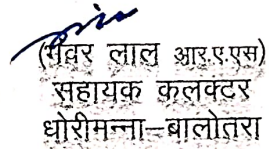 (गंवर लाल आर.ए.एस)
सहायक कलक्टर
धोरीमन्ना–बालोतरा